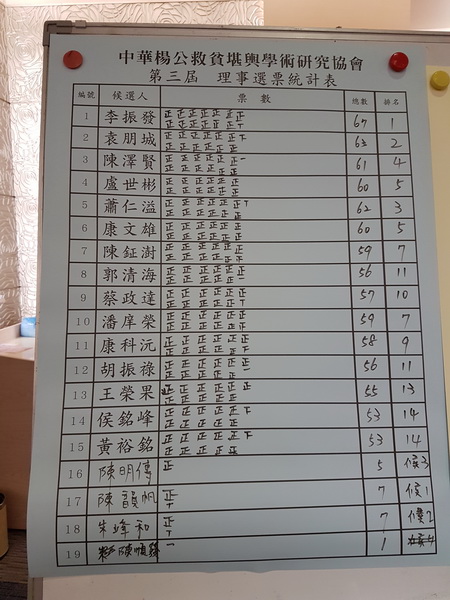 中華楊公救貧堪輿學術研究協會
第三屆 理事選票統計表
編號 候選人 票數 總數 排名
1 李振發 正正正正正正正正正正正正正丅 67 1
2 袁朋城 正正正正正正丅正正正正正正 63 2
3 陳澤賢 正正正正正正一正正正正正正 61 4
4 盧世彬 正正正正正正正正正正正正 60 5
5 蕭仁溢 正正正正正正丅正正正正正正 62 3
6 康文雄 正正正正正正正正正正正正 60 5
7 陳鉦澍 59 7
8 郭清海 正正正正正正正正正正正一 56 11
9 蔡政達 正正正正正正正正正正正丅 57 10
10 潘庠榮 59 7
11 康科沅 58 9
12 胡振祿 正正正正正正正正正正正一 56 11
13 王榮果 正正正正正正正正正正正 55 13
14 侯銘峰 正正正正正丅正正正正正 53 14
15 黃裕銘 正正正正正丅正正正正正 53 14
16 陳明傳 正 5 候3
17 陳韻帆 正丅 7 候1
18 朱峰和 正丅 7 候2
19 陳 一 1